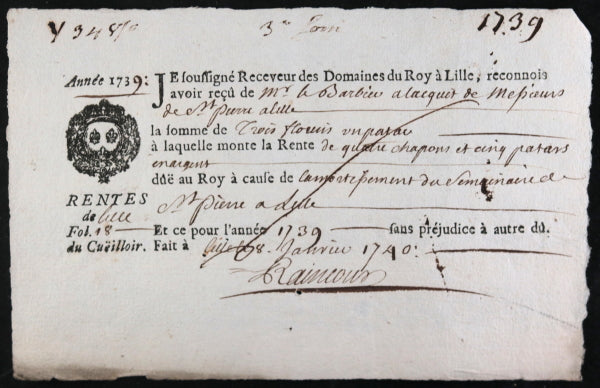 1739
Année 1739:
JE soussigné Receveur des Domaines du Roy à Lille, reconnois
avoir reçu de Mr. le Barbier a lacquit de Messieurs
de St. Pierre a lille
la somme de Trois florins un patar
à laquelle monte la Rente de quatre chapons et cinq patars
en argent
düë au Roy à cause de Lamortissement du Seminaire de
St. Pierre a Lille
RENTES
de Lille
Fol. 18
du Cuëilloir.
Et ce pour l'année 1739 sans préjudice à autre dû.
Fait à Lille 8. Janvier 1740.
Raincour